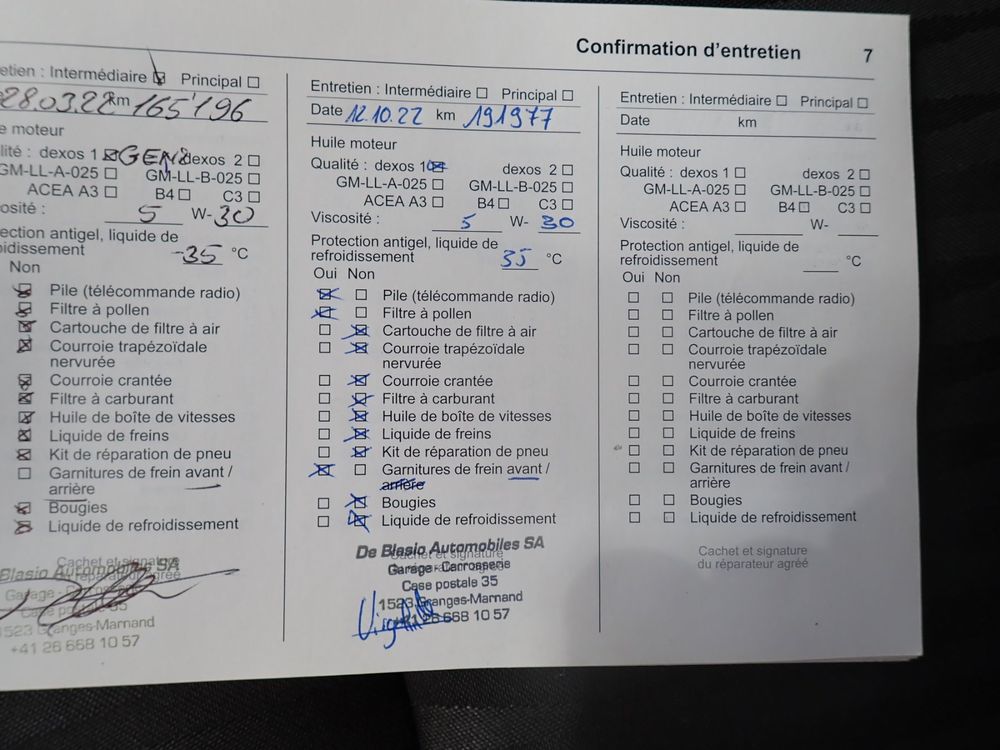 Confirmation d'entretien 7
etien : Intermédiaire ☒ Principal ☐
28.03.22 km 165'196
e moteur
lité : dexos 1 ☒ GEN2 dexos 2 ☐
GM-LL-A-025 ☐ GM-LL-B-025 ☐
ACEA A3 ☐ B4 ☐ C3 ☐
osité : 5 W- 30
ection antigel, liquide de
oidissement -35 °C
Non
☒ Pile (télécommande radio)
☒ Filtre à pollen
☒ Cartouche de filtre à air
☒ Courroie trapézoïdale
nervurée
☒ Courroie crantée
☒ Filtre à carburant
☒ Huile de boîte de vitesses
☒ Liquide de freins
☒ Kit de réparation de pneu
☐ Garnitures de frein avant /
arrière
☒ Bougies
☒ Liquide de refroidissement
Cachet et signature
du réparateur agréé
Blasio Automobiles SA
Garage - Carrosserie
Case postale 35
1523 Granges-Marnand
+41 26 668 10 57
Entretien : Intermédiaire ☐ Principal ☐
Date 12.10.22 km 191977
Huile moteur
Qualité : dexos 1 ☒ dexos 2 ☐
GM-LL-A-025 ☐ GM-LL-B-025 ☐
ACEA A3 ☐ B4 ☐ C3 ☐
Viscosité : 5 W- 30
Protection antigel, liquide de
refroidissement 35 °C
Oui Non
☒ ☐ Pile (télécommande radio)
☒ ☐ Filtre à pollen
☐ ☒ Cartouche de filtre à air
☐ ☒ Courroie trapézoïdale
nervurée
☐ ☒ Courroie crantée
☐ ☒ Filtre à carburant
☐ ☒ Huile de boîte de vitesses
☐ ☒ Liquide de freins
☐ ☒ Kit de réparation de pneu
☒ ☐ Garnitures de frein avant /
arrière
☐ ☒ Bougies
☐ ☒ Liquide de refroidissement
De Blasio Automobiles SA
Cachet et signature
Garage - Carrosserie
Case postale 35
1523 Granges-Marnand
+41 26 668 10 57
Entretien : Intermédiaire ☐ Principal ☐
Date km
Huile moteur
Qualité : dexos 1 ☐ dexos 2 ☐
GM-LL-A-025 ☐ GM-LL-B-025 ☐
ACEA A3 ☐ B4 ☐ C3 ☐
Viscosité : W-
Protection antigel, liquide de
refroidissement °C
Oui Non
☐ ☐ Pile (télécommande radio)
☐ ☐ Filtre à pollen
☐ ☐ Cartouche de filtre à air
☐ ☐ Courroie trapézoïdale
nervurée
☐ ☐ Courroie crantée
☐ ☐ Filtre à carburant
☐ ☐ Huile de boîte de vitesses
☐ ☐ Liquide de freins
☐ ☐ Kit de réparation de pneu
☐ ☐ Garnitures de frein avant /
arrière
☐ ☐ Bougies
☐ ☐ Liquide de refroidissement
Cachet et signature
du réparateur agréé